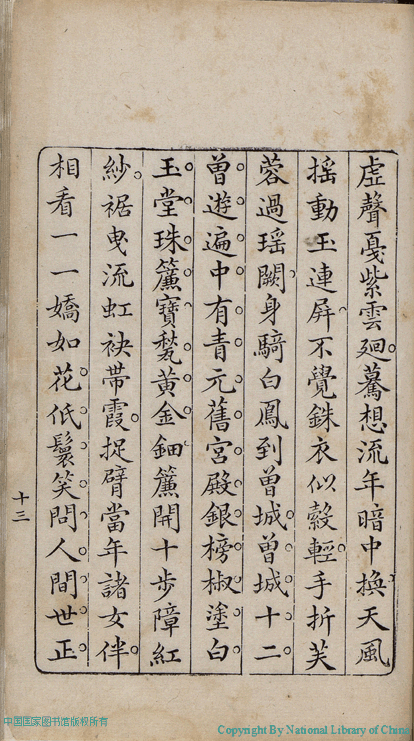 虛聲戞紫雲廻驀想流年暗中換天風
搖動玉連屏不覺銖衣似縠輕手折芙
蓉過瑶闕身騎白鳳到曾城曾城十二
曾遊遍中有青元舊宮殿銀榜椒塗白
玉堂珠簾寶甃黃金鈿簾開十步障紅
紗裾曳流虹袂帶霞捉臂當年諸女伴
相看一一嬌如花低鬟笑問人間世正
十三
中国国家图书馆版权所有
Copyright By National Library of China